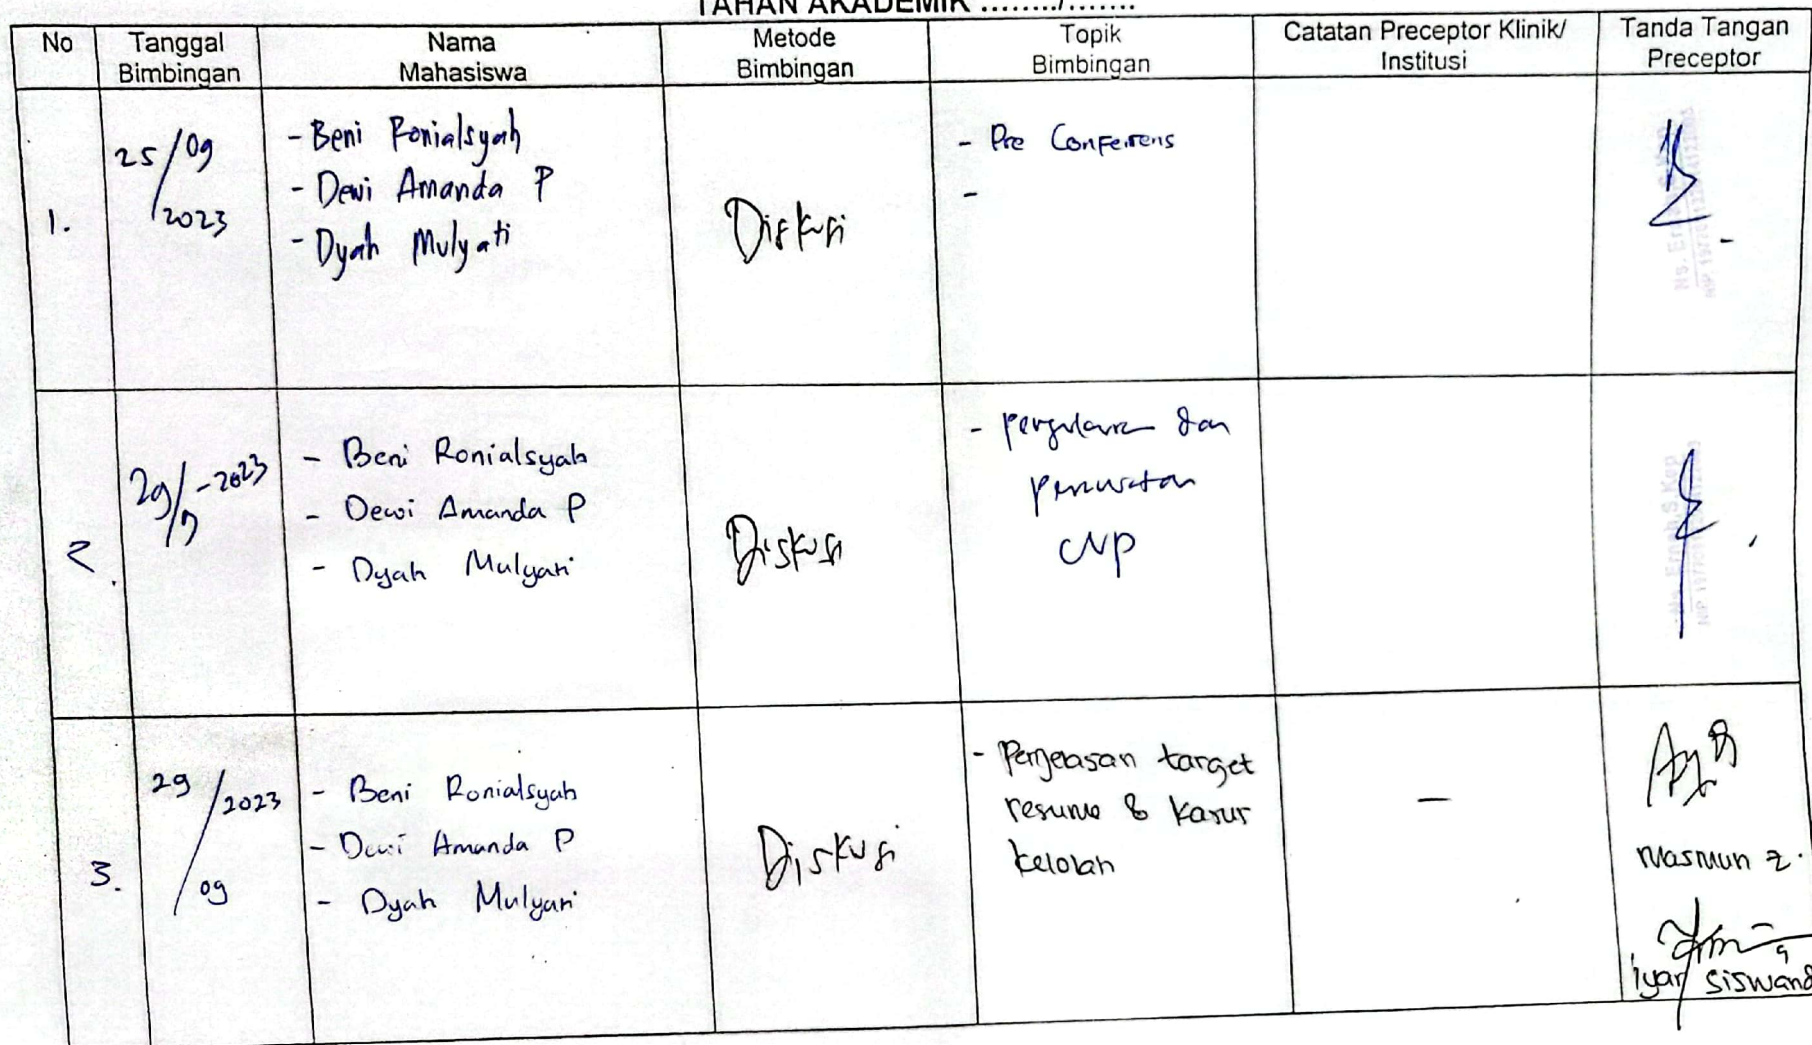 TAHAN AKADEMIK ......../.......
No
Tanggal
Bimbingan
Nama
Mahasiswa
Metode
Bimbingan
Topik
Bimbingan
Catatan Preceptor Klinik/
Institusi
Tanda Tangan
Preceptor
1.
25/09
2023
- Beni Ronialsyah
- Dewi Amanda P
- Dyah Mulyati
Diskusi
- Pre Conferens
-
2.
29/ -2023
- Beni Ronialsyah
- Dewi Amanda P
- Dyah Mulyari
Diskusi
- dan
3.
29/2023
/09
- Beni Ronialsyah
- Dewi Amanda P
- Dyah Mulyari
Diskusi
- Penjelasan target
resume & kasus
kelolan
-
Masmun z.
iyar siswand